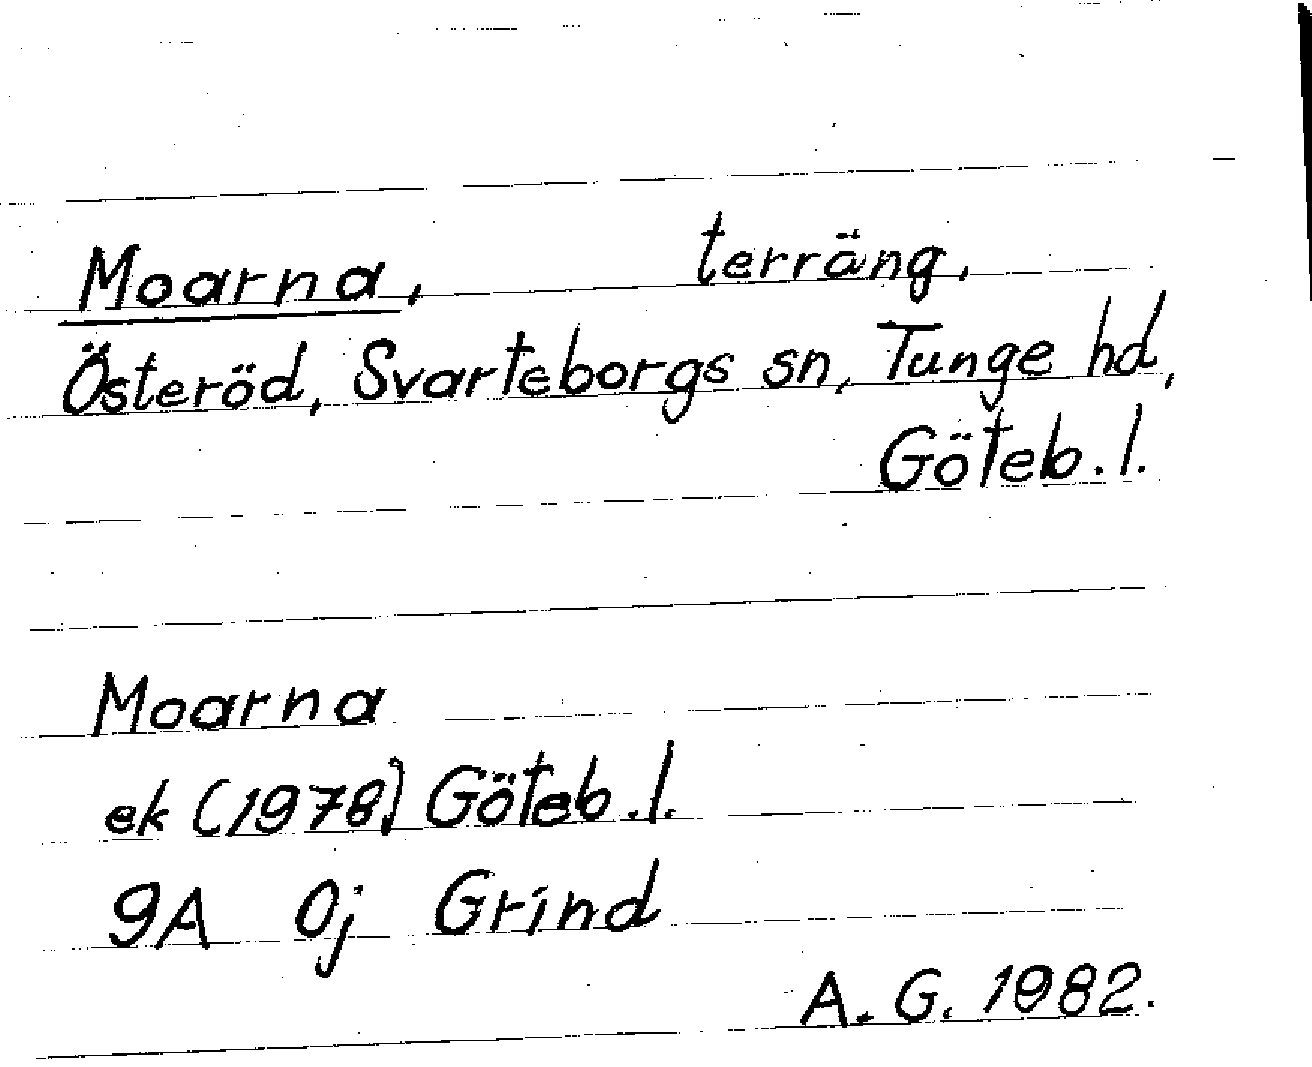 Moarna, terräng,
Österöd, Svarteborgs sn, Tunge hd,
Göteb. l.
Moarna
ek (1978) Göteb. l.
9A 0j Grind
A. G. 1982.